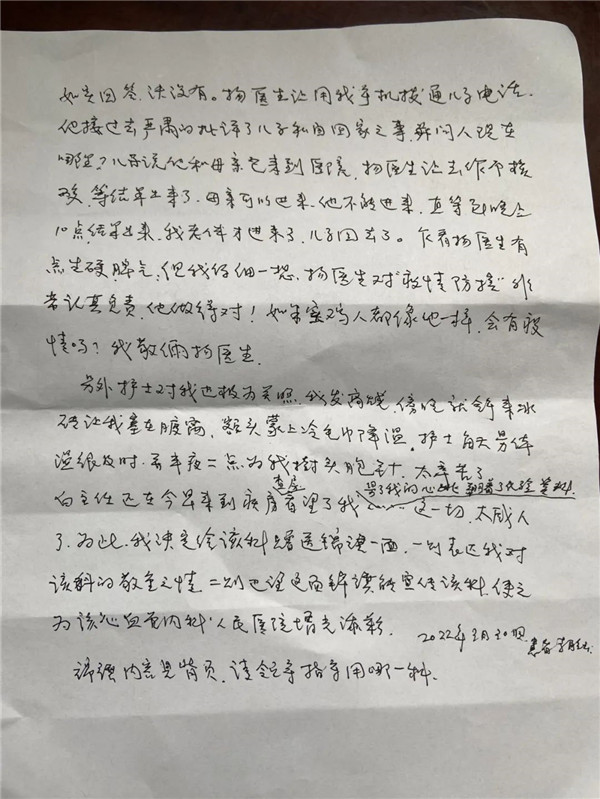 如实回答,决没有。杨医生让用我手机拨通儿子电话.
他接过去严肃的批评了儿子私自回家之事,并问人现在
哪里?儿子说他和母亲已来到医院,杨医生让去作个核
酸,等结果出来了,母亲可以进来,他不能进来,直等到晚上
10点,结果出来,我老伴才进来了,儿子回去了。乍看杨医生有
点生硬脾气,但我仔细一想,杨医生对"疫情防控"非
常认真负责,他做得对!如果宝鸡人都像他一样,会有疫
情吗?我敬佩杨医生.
另外护士对我也极为关照,我发高烧,傍晚 取来冰
砖让我塞在腋窝,额头蒙上冷毛巾降温,护士每天 体
温很及时,若半夜二点为我 头胞针,太辛苦了
白主任还在今早来到病房 查房
看望了我 号了我的心跳 这一切,太感人
了,为此,我决定给该科赠送锦旗一面,一则表达我对
该科的敬重之情,二则也让这面锦旗能宣传该科,使之
为该心血管内科、人民医院增光添彩.
2022年3月30日. 患者
锦旗内容见背页,请领导指导用哪一种.